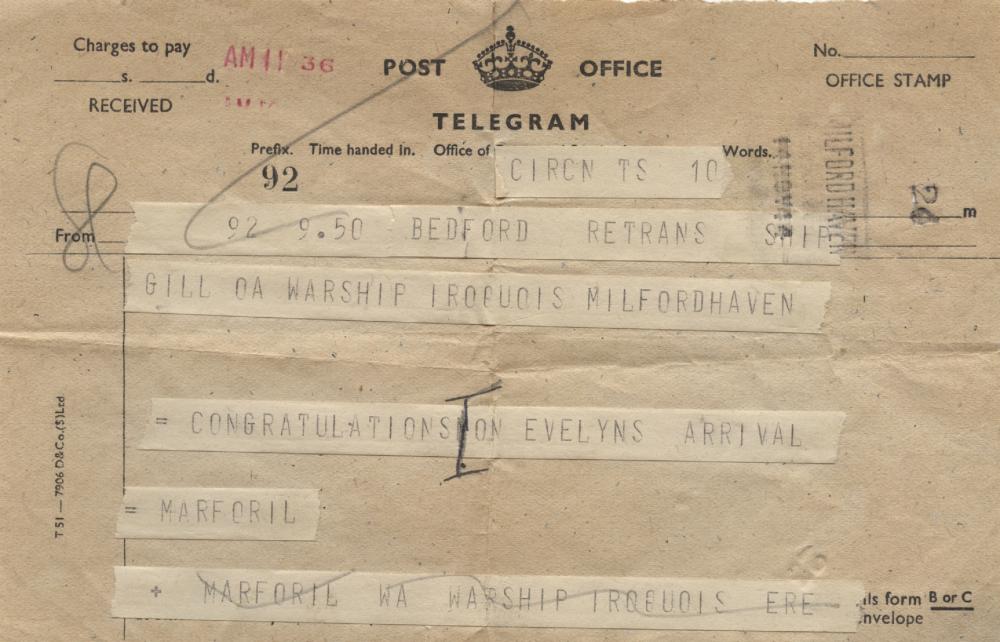 Charges to pay
____s. ____d.
RECEIVED
AM 11 36
POST OFFICE
TELEGRAM
No.
OFFICE STAMP
Prefix. Time handed in. Office of Words.
92
CIRCN TS 10
MILFORDHAVEN
26 m
From
92 9.50 BEDFORD RETRANS SHIP
GILL OA WARSHIP IROQUOIS MILFORDHAVEN
= CONGRATULATIONS ON EVELYNS ARRIVAL
= MARFORIL
+ MARFORIL WA WARSHIP IROQUOIS ERE
T 51 — 7906 D&Co.(S)Ltd
form B or C